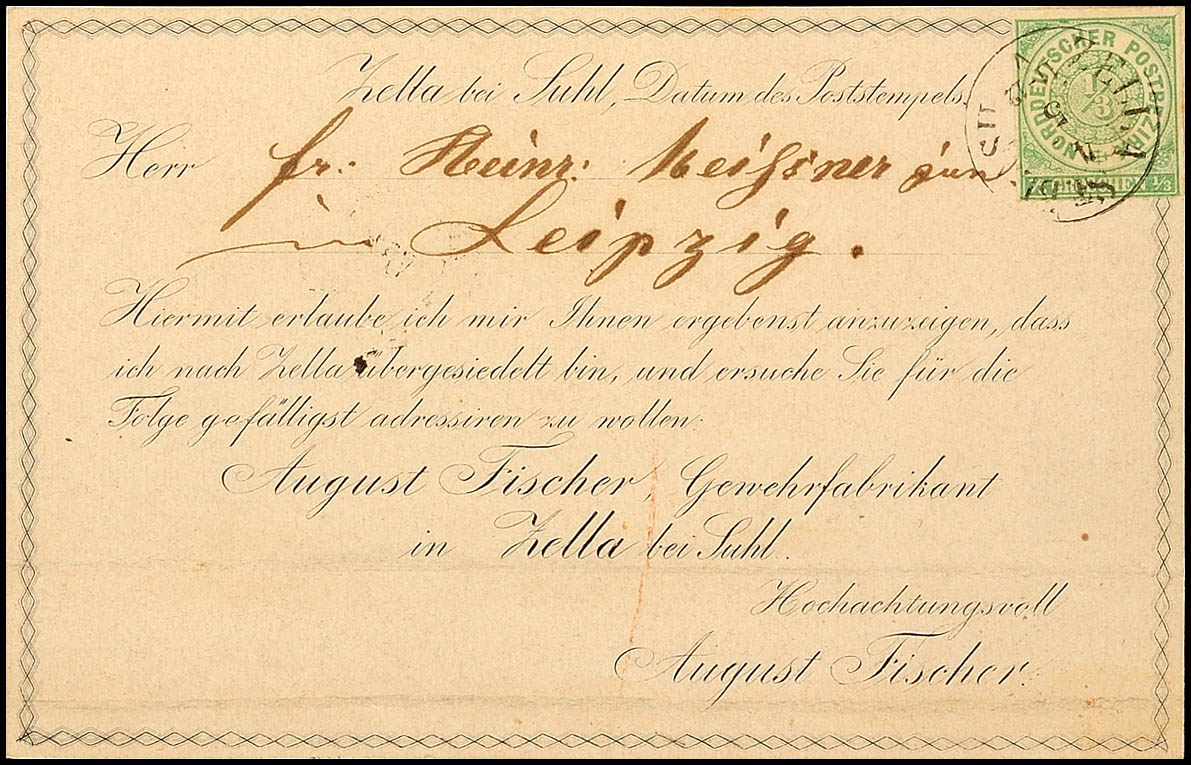 Zella bei Suhl, Datum des Poststempels.
Herr fr: Heinr: Meissner jun
in Leipzig.
Hiermit erlaube ich mir Ihnen ergebenst anzuzeigen, dass
ich nach Zella übergesiedelt bin, und ersuche Sie für die
Folge gefälligst adressiren zu wollen:
August Fischer, Gewehrfabrikant
in Zella bei Suhl.
Hochachtungsvoll
August Fischer.
NORDDEUTSCHER POSTBEZIRK
1/3
1/3